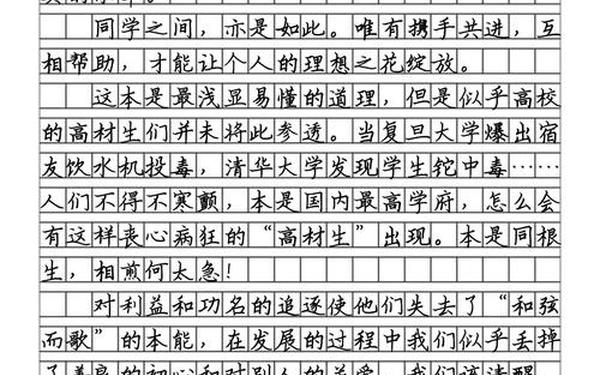 同学之间，亦是如此。唯有携手共进，互
相帮助，才能让个人的理想之花绽放。
这本是最浅显易懂的道理，但是似乎高校
的高材生们并未将此参透。当复旦大学爆出宿
友饮水机投毒，清华大学发现学生铊中毒……
人们不得不寒颤，本是国内最高学府，怎么会
有这样丧心病狂的“高材生”出现。本是同根
生，相煎何太急！
对利益和功名的追逐使他们失去了“和弦
而歌”的本能，在发展的过程中我们似乎丢掉
了善良的初心和对别人的关爱。我们该清醒